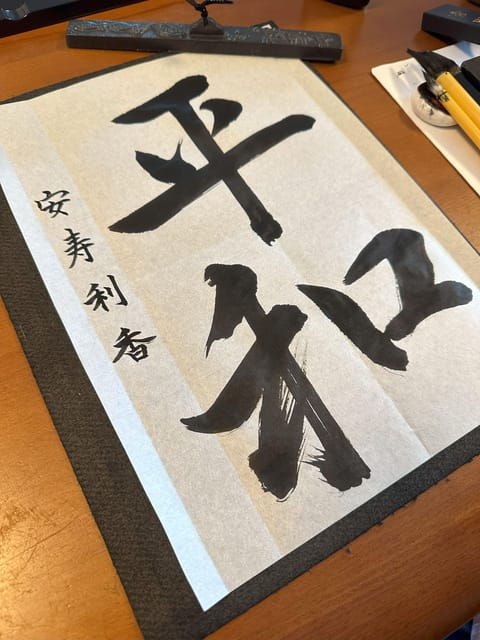 平和
安寿利香